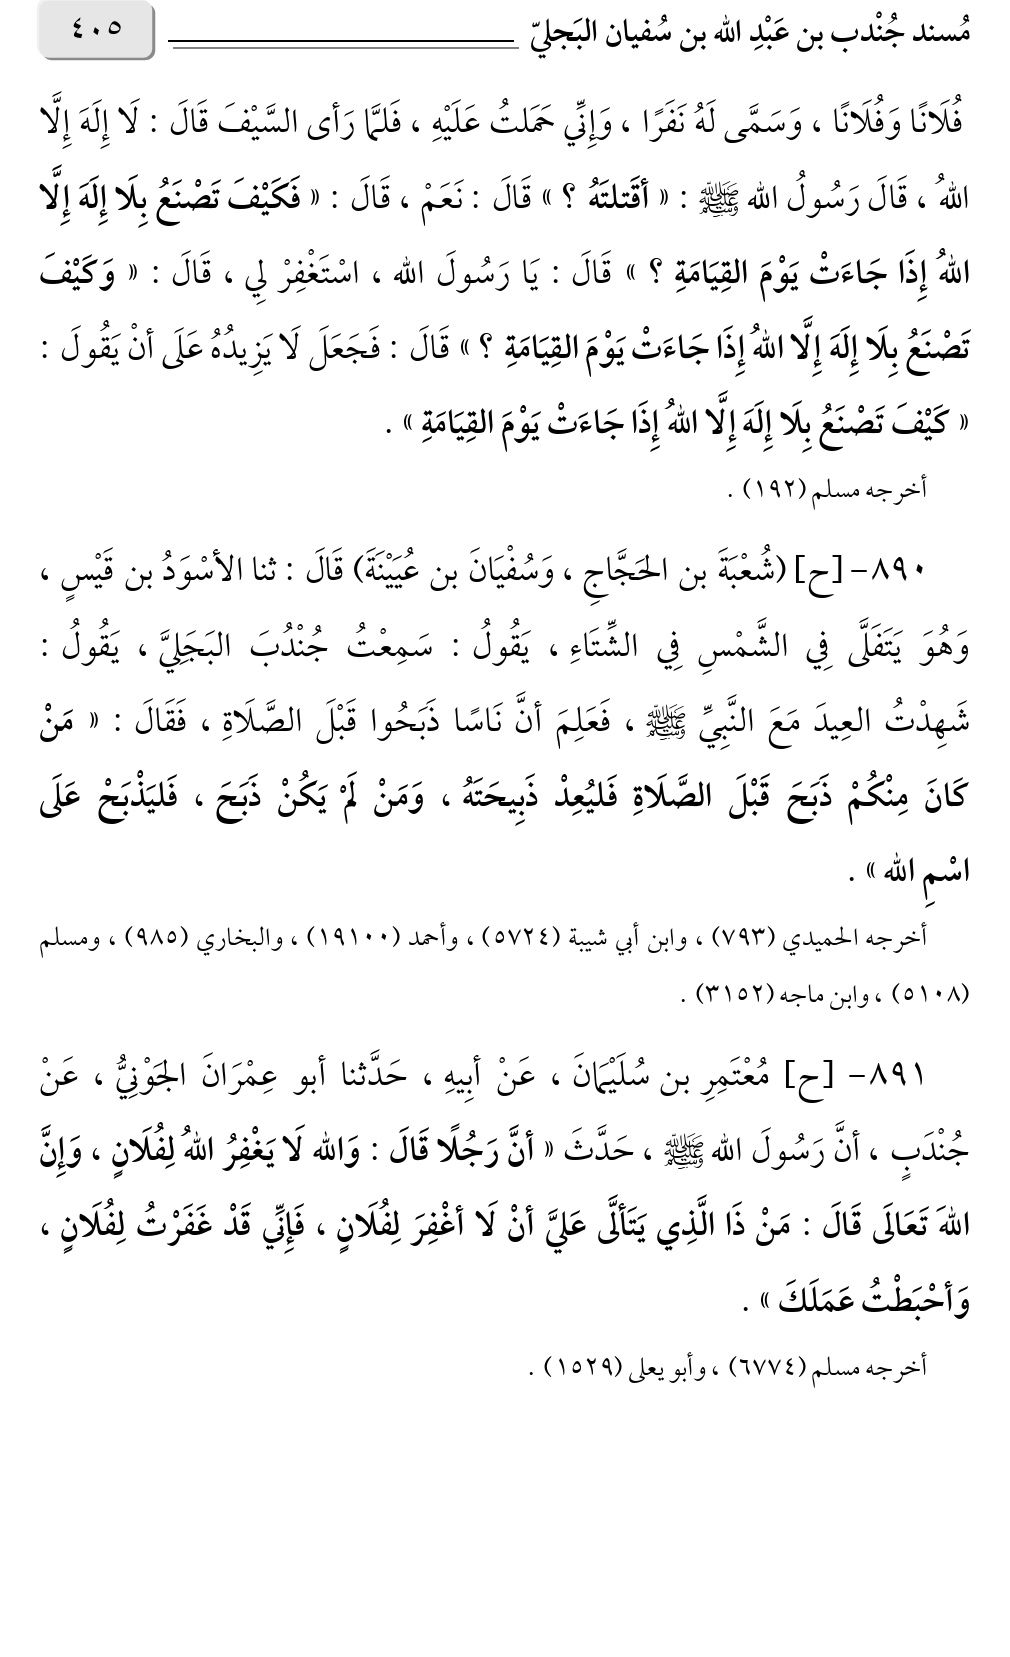 مُسند جُنْدب بن عَبْدِ الله بن سُفيان البَجليّ
٤٠٥
فُلَانًا وَفُلَانًا ، وَسَمَّى لَهُ نَفَرًا ، وَإِنِّي حَمَلتُ عَلَيْهِ ، فَلمَّا رَأى السَّيْفَ قَالَ : لَا إِلَهَ إِلَّا
اللهُ ، قَالَ رَسُولُ الله ﷺ : « أقَتلتَهُ ؟ » قَالَ : نَعَمْ ، قَالَ : « فَكَيْفَ تَصْنَعُ بِلَا إِلَهَ إِلَّا
اللهُ إِذَا جَاءَتْ يَوْمَ القِيَامَةِ ؟ » قَالَ : يَا رَسُولَ الله ، اسْتَغْفِرْ لِي ، قَالَ : « وَكَيْفَ
تَصْنَعُ بِلَا إِلَهَ إِلَّا اللهُ إِذَا جَاءَتْ يَوْمَ القِيَامَةِ ؟ » قَالَ : فَجَعَلَ لَا يَزِيدُهُ عَلَى أنْ يَقُولَ :
« كَيْفَ تَصْنَعُ بِلَا إِلَهَ إِلَّا اللهُ إِذَا جَاءَتْ يَوْمَ القِيَامَةِ » .
أخرجه مسلم (١٩٢) .
٨٩٠- [ح] (شُعْبَةَ بن الحَجَّاجِ ، وَسُفْيَانَ بن عُيَيْنَةَ) قَالَ : ثنا الأسْوَدُ بن قَيْسٍ ،
وَهُوَ يَتَفَلَّى فِي الشَّمْسِ فِي الشِّتَاءِ ، يَقُولُ : سَمِعْتُ جُنْدُبَ البَجَلِيَّ ، يَقُولُ :
شَهِدْتُ العِيدَ مَعَ النَّبِيِّ ﷺ ، فَعَلِمَ أنَّ نَاسًا ذَبَحُوا قَبْلَ الصَّلَاةِ ، فَقَالَ : « مَنْ
كَانَ مِنْكُمْ ذَبَحَ قَبْلَ الصَّلَاةِ فَليُعِدْ ذَبِيحَتَهُ ، وَمَنْ لَمْ يَكُنْ ذَبَحَ ، فَليَذْبَحْ عَلَى
اسْمِ الله » .
أخرجه الحميدي (٧٩٣) ، وابن أبي شيبة (٥٧٢٤) ، وأحمد (١٩١٠٠) ، والبخاري (٩٨٥) ، ومسلم
(٥١٠٨) ، وابن ماجه (٣١٥٢) .
٨٩١- [ح] مُعْتَمِرِ بن سُلَيْمَانَ ، عَنْ أبِيهِ ، حَدَّثنا أبو عِمْرَانَ الجَوْنِيُّ ، عَنْ
جُنْدَبٍ ، أنَّ رَسُولَ الله ﷺ ، حَدَّثَ « أنَّ رَجُلًا قَالَ : وَالله لَا يَغْفِرُ اللهُ لِفُلَانٍ ، وَإِنَّ
اللهَ تَعَالَى قَالَ : مَنْ ذَا الَّذِي يَتَألَّى عَليَّ أنْ لَا أغْفِرَ لِفُلَانٍ ، فَإِنِّي قَدْ غَفَرْتُ لِفُلَانٍ ،
وَأحْبَطْتُ عَمَلَكَ » .
أخرجه مسلم (٦٧٧٤) ، وأبو يعلى (١٥٢٩) .